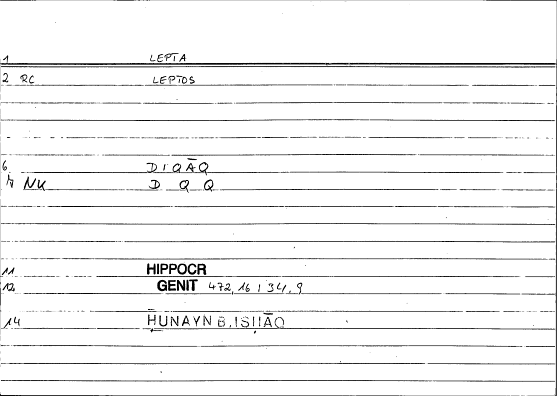 1 LEPTA
2 RC LEPTOS
6 DIQĀQ
NK D Q Q
11 HIPPOCR
12 GENIT 472,16 ; 34,9
14 ḤUNAYN B. ISḤĀQ